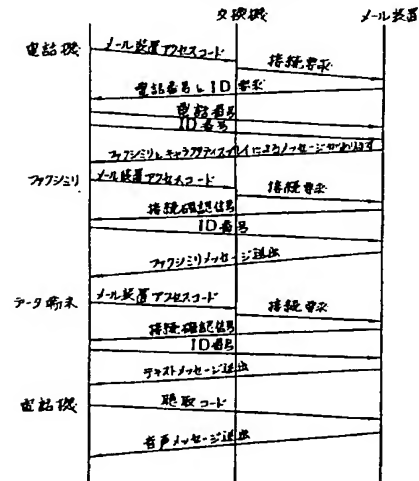 交換機
メール装置
電話機
メール装置アクセスコード
接続要求
電話番号とID要求
電話番号
ID番号
ファクシミリとキャラクタディスプレイによるメッセージがあります
ファクシミリ
メール装置アクセスコード
接続要求
接続確認信号
ID番号
ファクシミリメッセージ送出
データ端末
メール装置アクセスコード
接続要求
接続確認信号
ID番号
テキストメッセージ送出
電話機
聴取コード
音声メッセージ送出